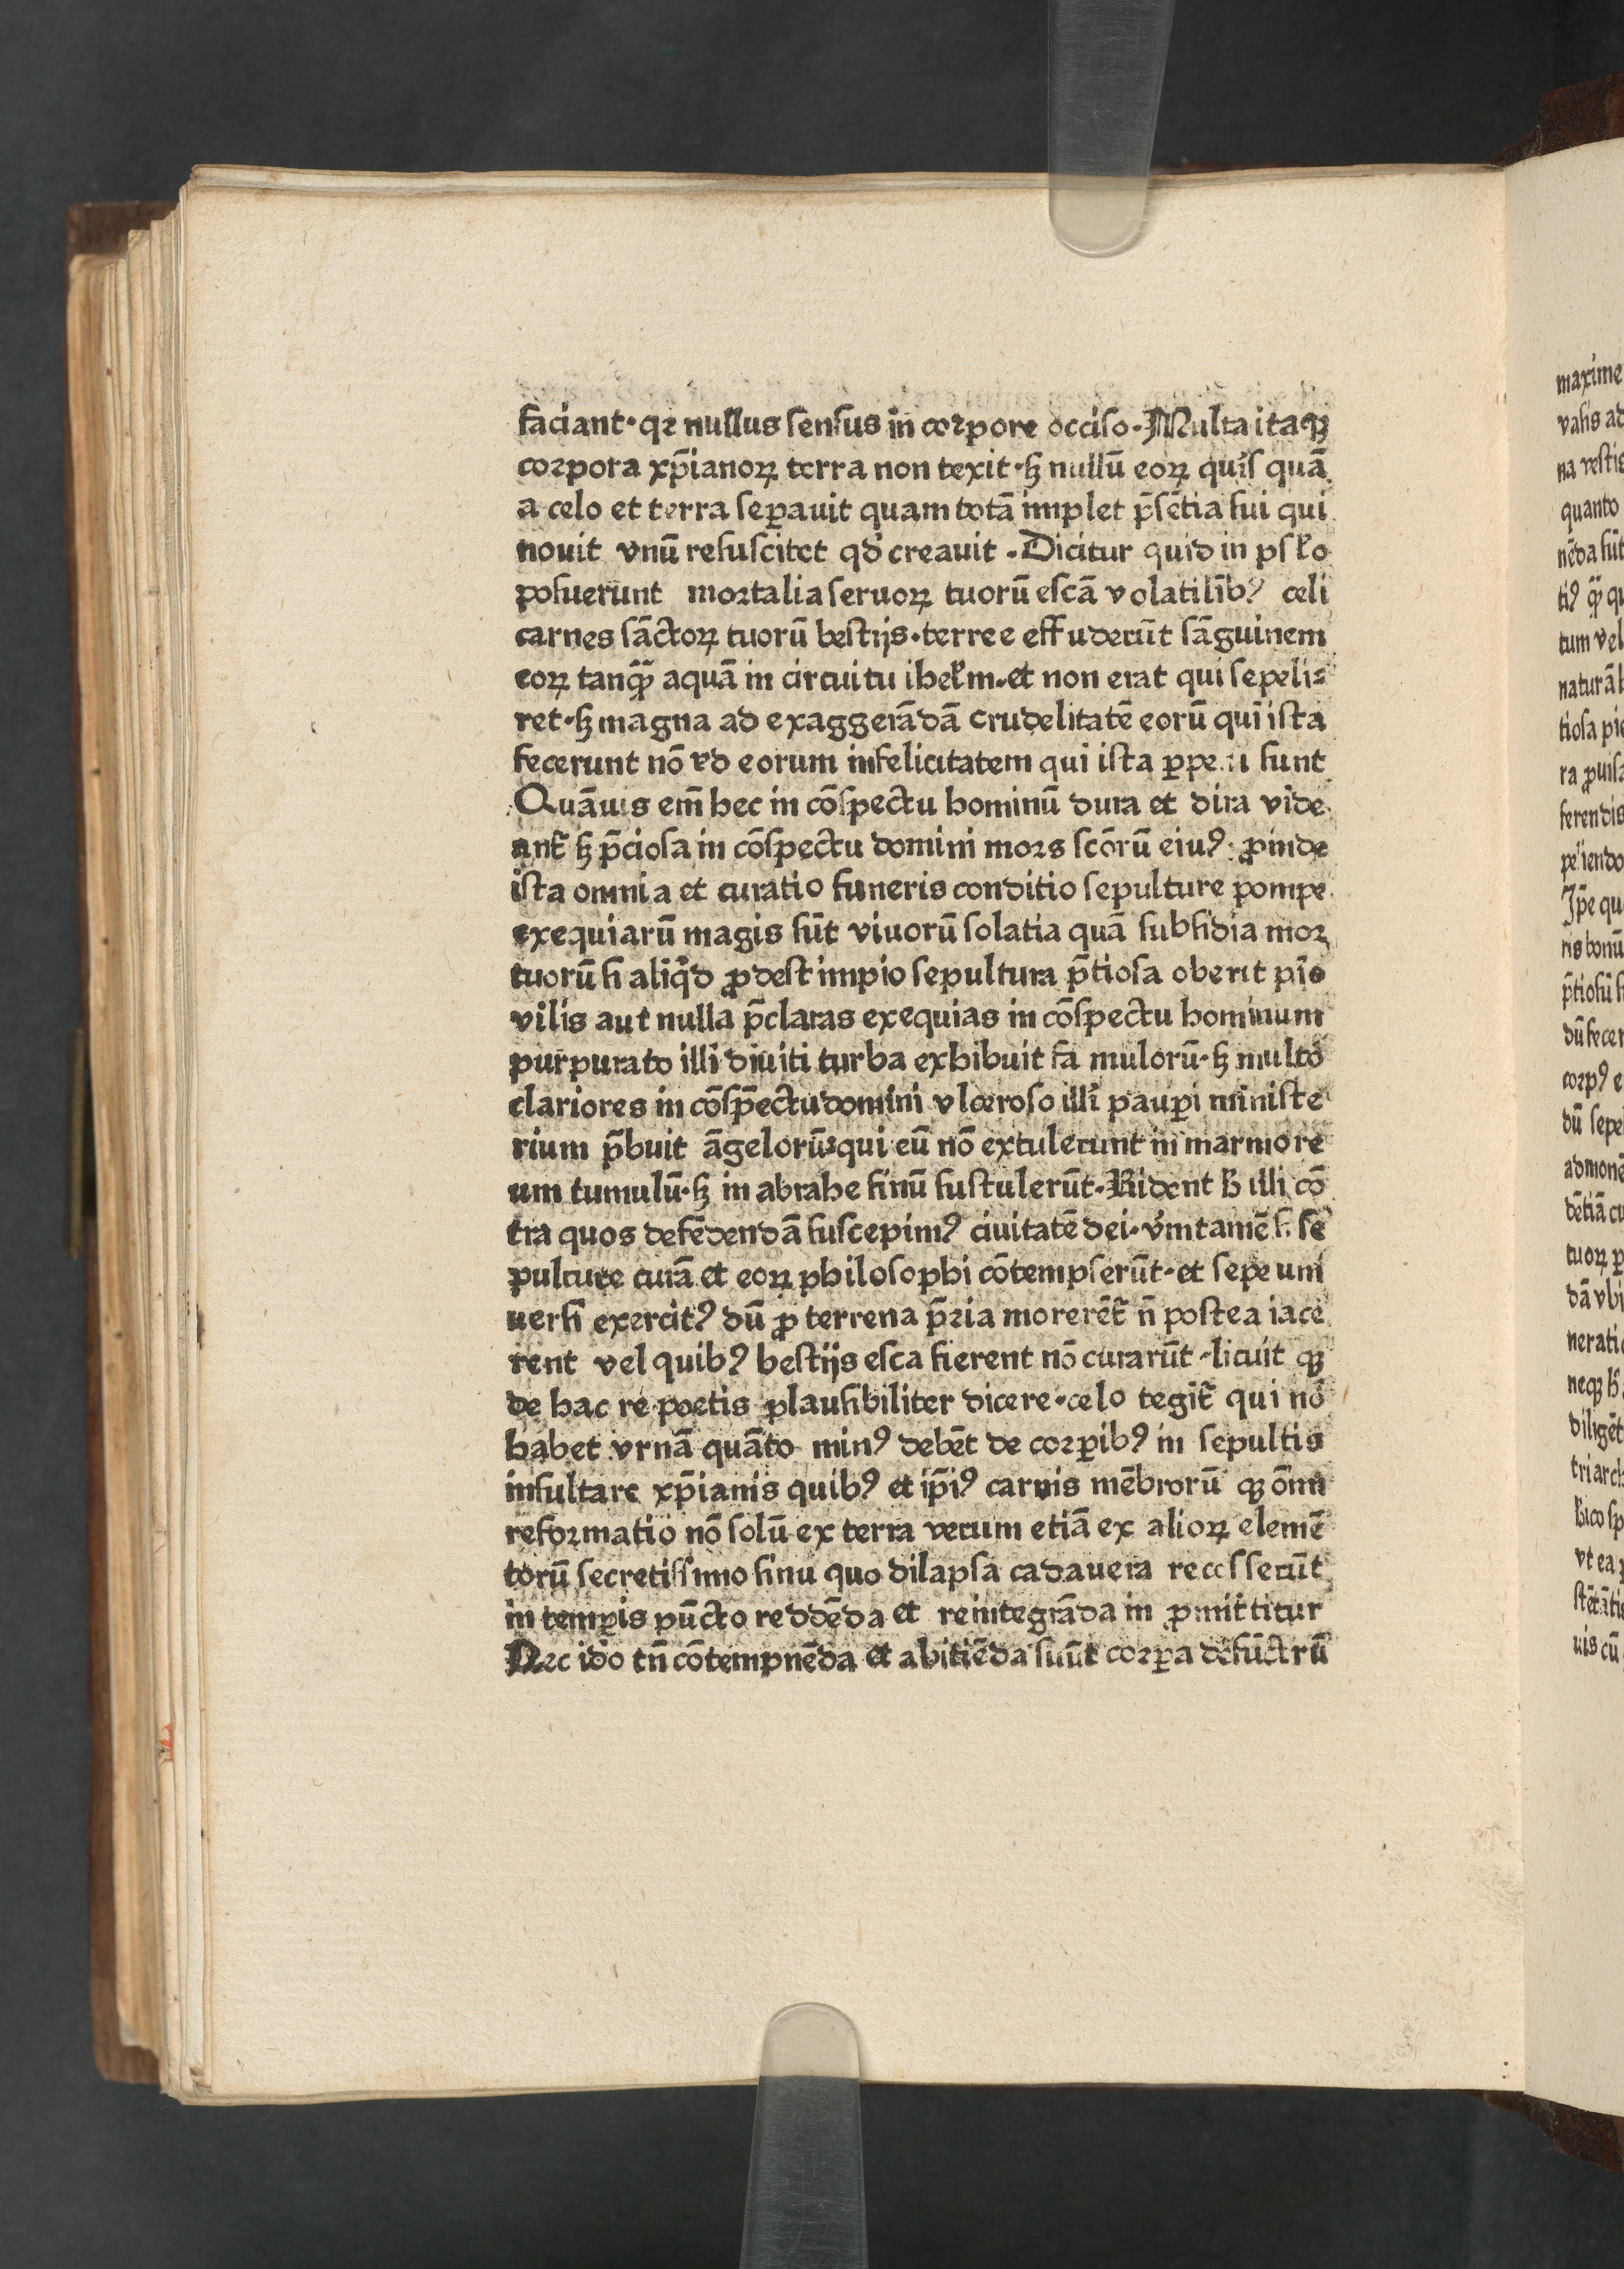 faciant·qꝛ nullus sensus in coꝛpore occiso·Multa itaqꝫ
coꝛpora xp̄ianoꝝ terra non texit·sꝫ nullū eoꝝ quis quā
a celo et terra seꝑauit quam totā implet p̄sētia sui qui
nouit vnū resuscitet qd̓ creauit·Dicitur quid in psl̓o
posuerunt moꝛtalia seruoꝝ tuorū escā volatilibꝰ celi
carnes sāctoꝝ tuorū bestijs·terre e effuderūt sāguinem
eoꝝ tanqꝫ̄ aquā in circuitu ihel̓m·et non erat qui sepeli⸗
ret·sꝫ magna ad exaggerādā crudelitatē eorū qui ista
fecerunt nō ad eorum infelicitatem qui ista ꝑpe ti sunt
Quāuis em̄ hec in cōspectu hominū dura et dira vide
ant᷑ sꝫ p̄ciosa in cōspectu domini moꝛs scōrū eiuꝰ ꝓinde
ista omnia et curatio funeris conditio sepulture pompe
exequiarū magis sūt viuorū solatia quā subsidia moꝛ
tuorū si aliqͥd ꝓdest impio sepultura p̄tiosa oberit pio
vilis aut nulla p̄claras exequias in cōspectu hominum
purpurato illi diuiti turba exhibuit fa mulorū·sꝫ multo
clariores in cōspectu domini vlceroso illi pauꝑi ministe
rium p̄buit āgelorū qui eū nō extulerunt in marmore
um tumulū·sꝫ in abrahe sinū sustulerūt·Rident h̓ illi cō
tra quos defēdendā suscepimꝰ ciuitatē dei·v̓mtamē h̓ se
pulture curā et eoꝝ philosophi cōtempserūt·et sepe uni
uersi exercitꝰ dū ꝓ terrena p̄ꝛia morerēt᷑ n̄ postea iace
rent vel quibꝰ bestijs esca fierent nō curarūt·licuit qꝫ
de hac re poetis plausibiliter dicere·celo tegit᷑ qui nō
habet vrnā quāto minꝰ debēt de coꝛꝑibꝰ in sepultis
insultare xp̄ianis quibꝰ et ip̄iꝰ carnis mēbrorū qꝫ ōm̄
refoꝛmatio nō solū ex terra verum etiā ex alioꝝ elemē
torū secretissimo sinu quo dilapsa cadauera recesserūt
in temꝑis pūcto reddēda et reintegrāda in ꝓmittitur
Nec ido tn̄ cōtempnēda et abitiēda sūūt coꝛꝑa defūctrū